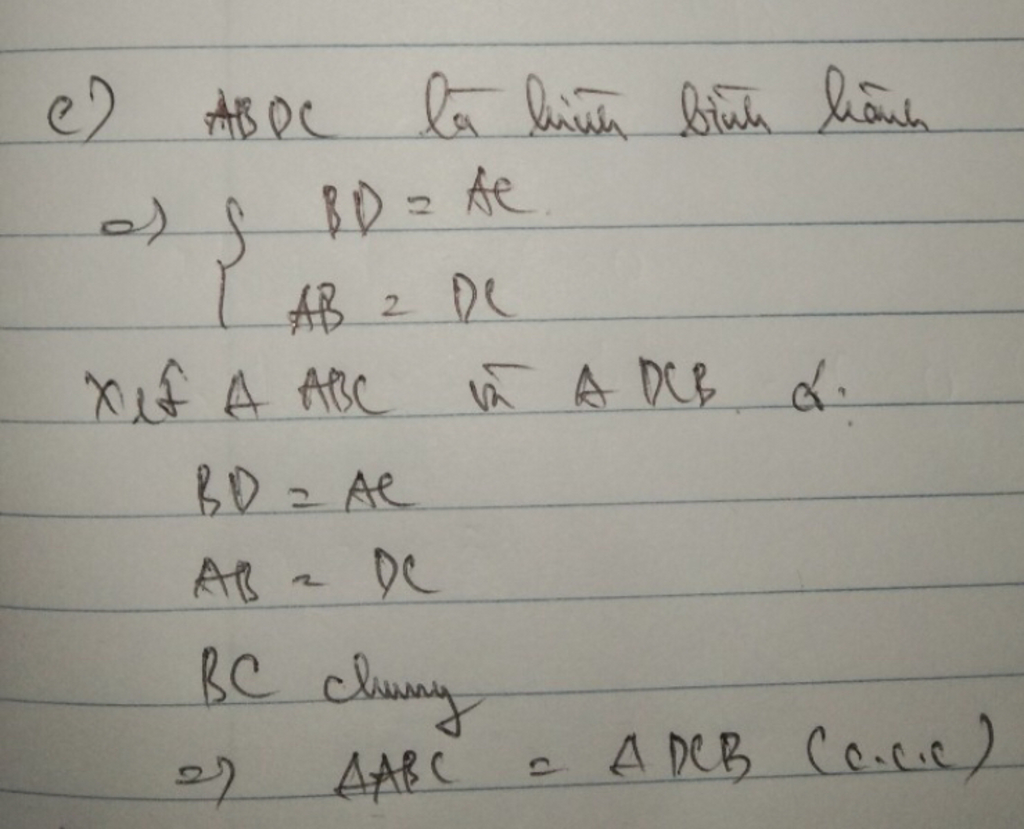 c) ABDC là hình bình hành
=> { BD = AC
AB = DC
Xét Δ ABC và Δ DCB có:
BD = AC
AB = DC
BC chung
=> ΔABC = Δ DCB (c.c.c)